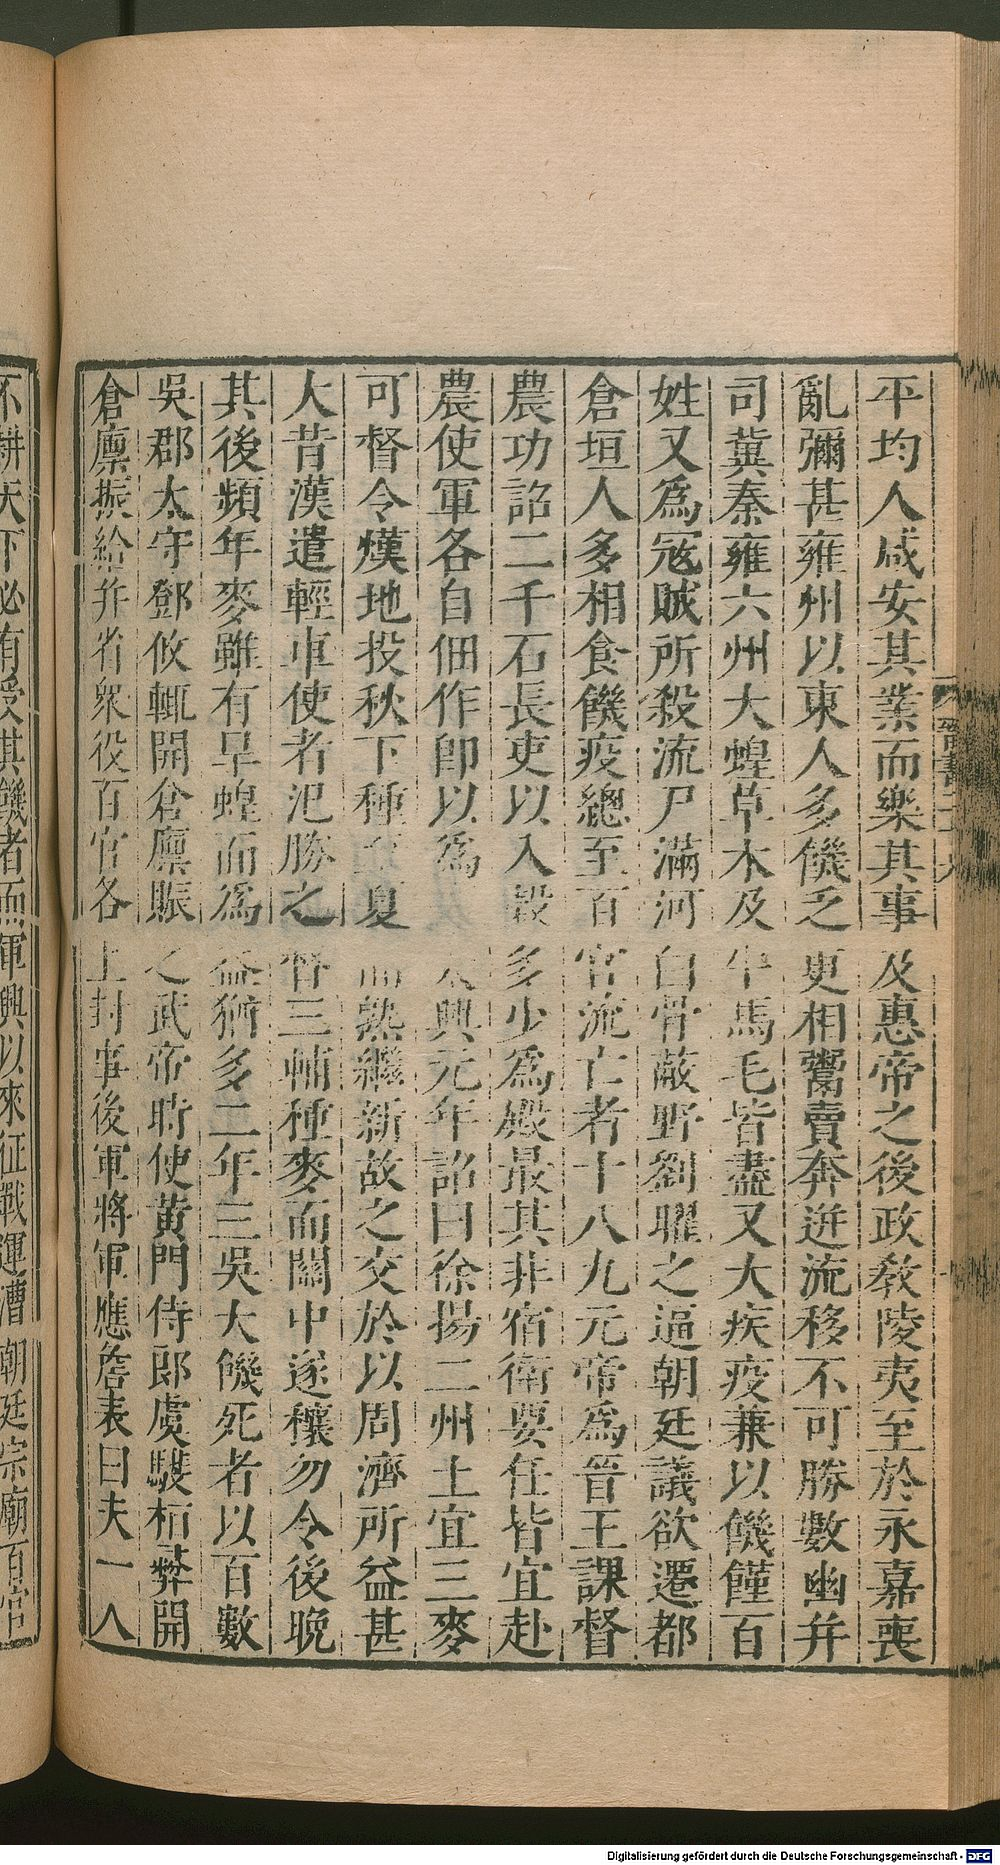 平均人咸安其業而樂其事及惠帝之後政教陵夷至於永嘉喪
亂彌甚雍州以東人多饑乏更相鬻賣奔迸流移不可勝數幽并
司冀秦雍六州大蝗草木及牛馬毛皆盡又大疾疫兼以饑饉百
姓又爲寇賊所殺流尸滿河白骨蔽野劉曜之逼朝廷議欲遷都
倉垣人多相食饑疫總至百官流亡者十八九元帝爲晉王課督
農功詔二千石長吏以入穀多少爲殿最其非宿衛要任皆宜赴
農使軍各自佃作卽以爲廩太興元年詔曰徐揚二州土宜三麥
可督令熯地投秋下種至夏而熟繼新故之交於以周濟所益甚
大昔漢遣輕車使者氾勝之督三輔種麥而關中遂穰勿令後晚
其後頻年麥雖有旱蝗而爲益猶多二年三吳大饑死者以百數
吳郡太守鄧攸輒開倉廩賑之武帝時使黃門侍郎虞𩦎桓彝開
倉廩振給并省衆役百官各上封事後軍將軍應詹表曰夫一人
不耕天下必有受其饑者而軍興以來征戰運漕朝廷宗廟百官
晉書二十六
Digitalisierung gefördert durch die Deutsche Forschungsgemeinschaft - DFG